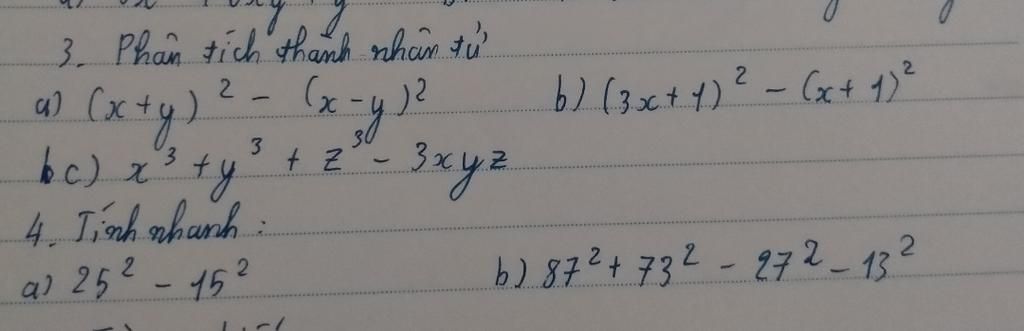 3. Phân tích thành nhân tử
a) (x+y)² - (x-y)² b) (3x+1)² - (x+1)²
c) x³ + y³ + z³ - 3xyz
4. Tính nhanh:
a) 25² - 15² b) 87² + 73² - 27² - 13²